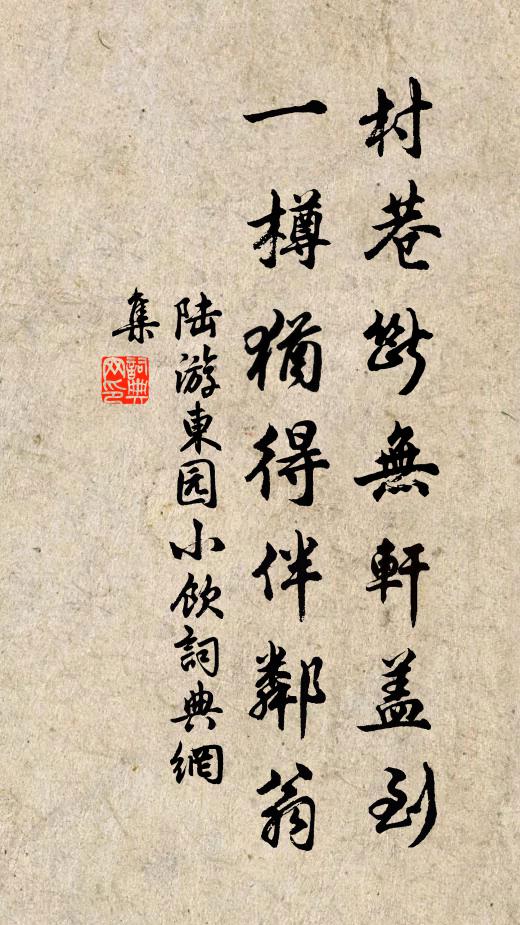 村巷断無軒盖到
一樽猶得伴鄰翁
陆游東园小飲詞典網
集
詞典
网印